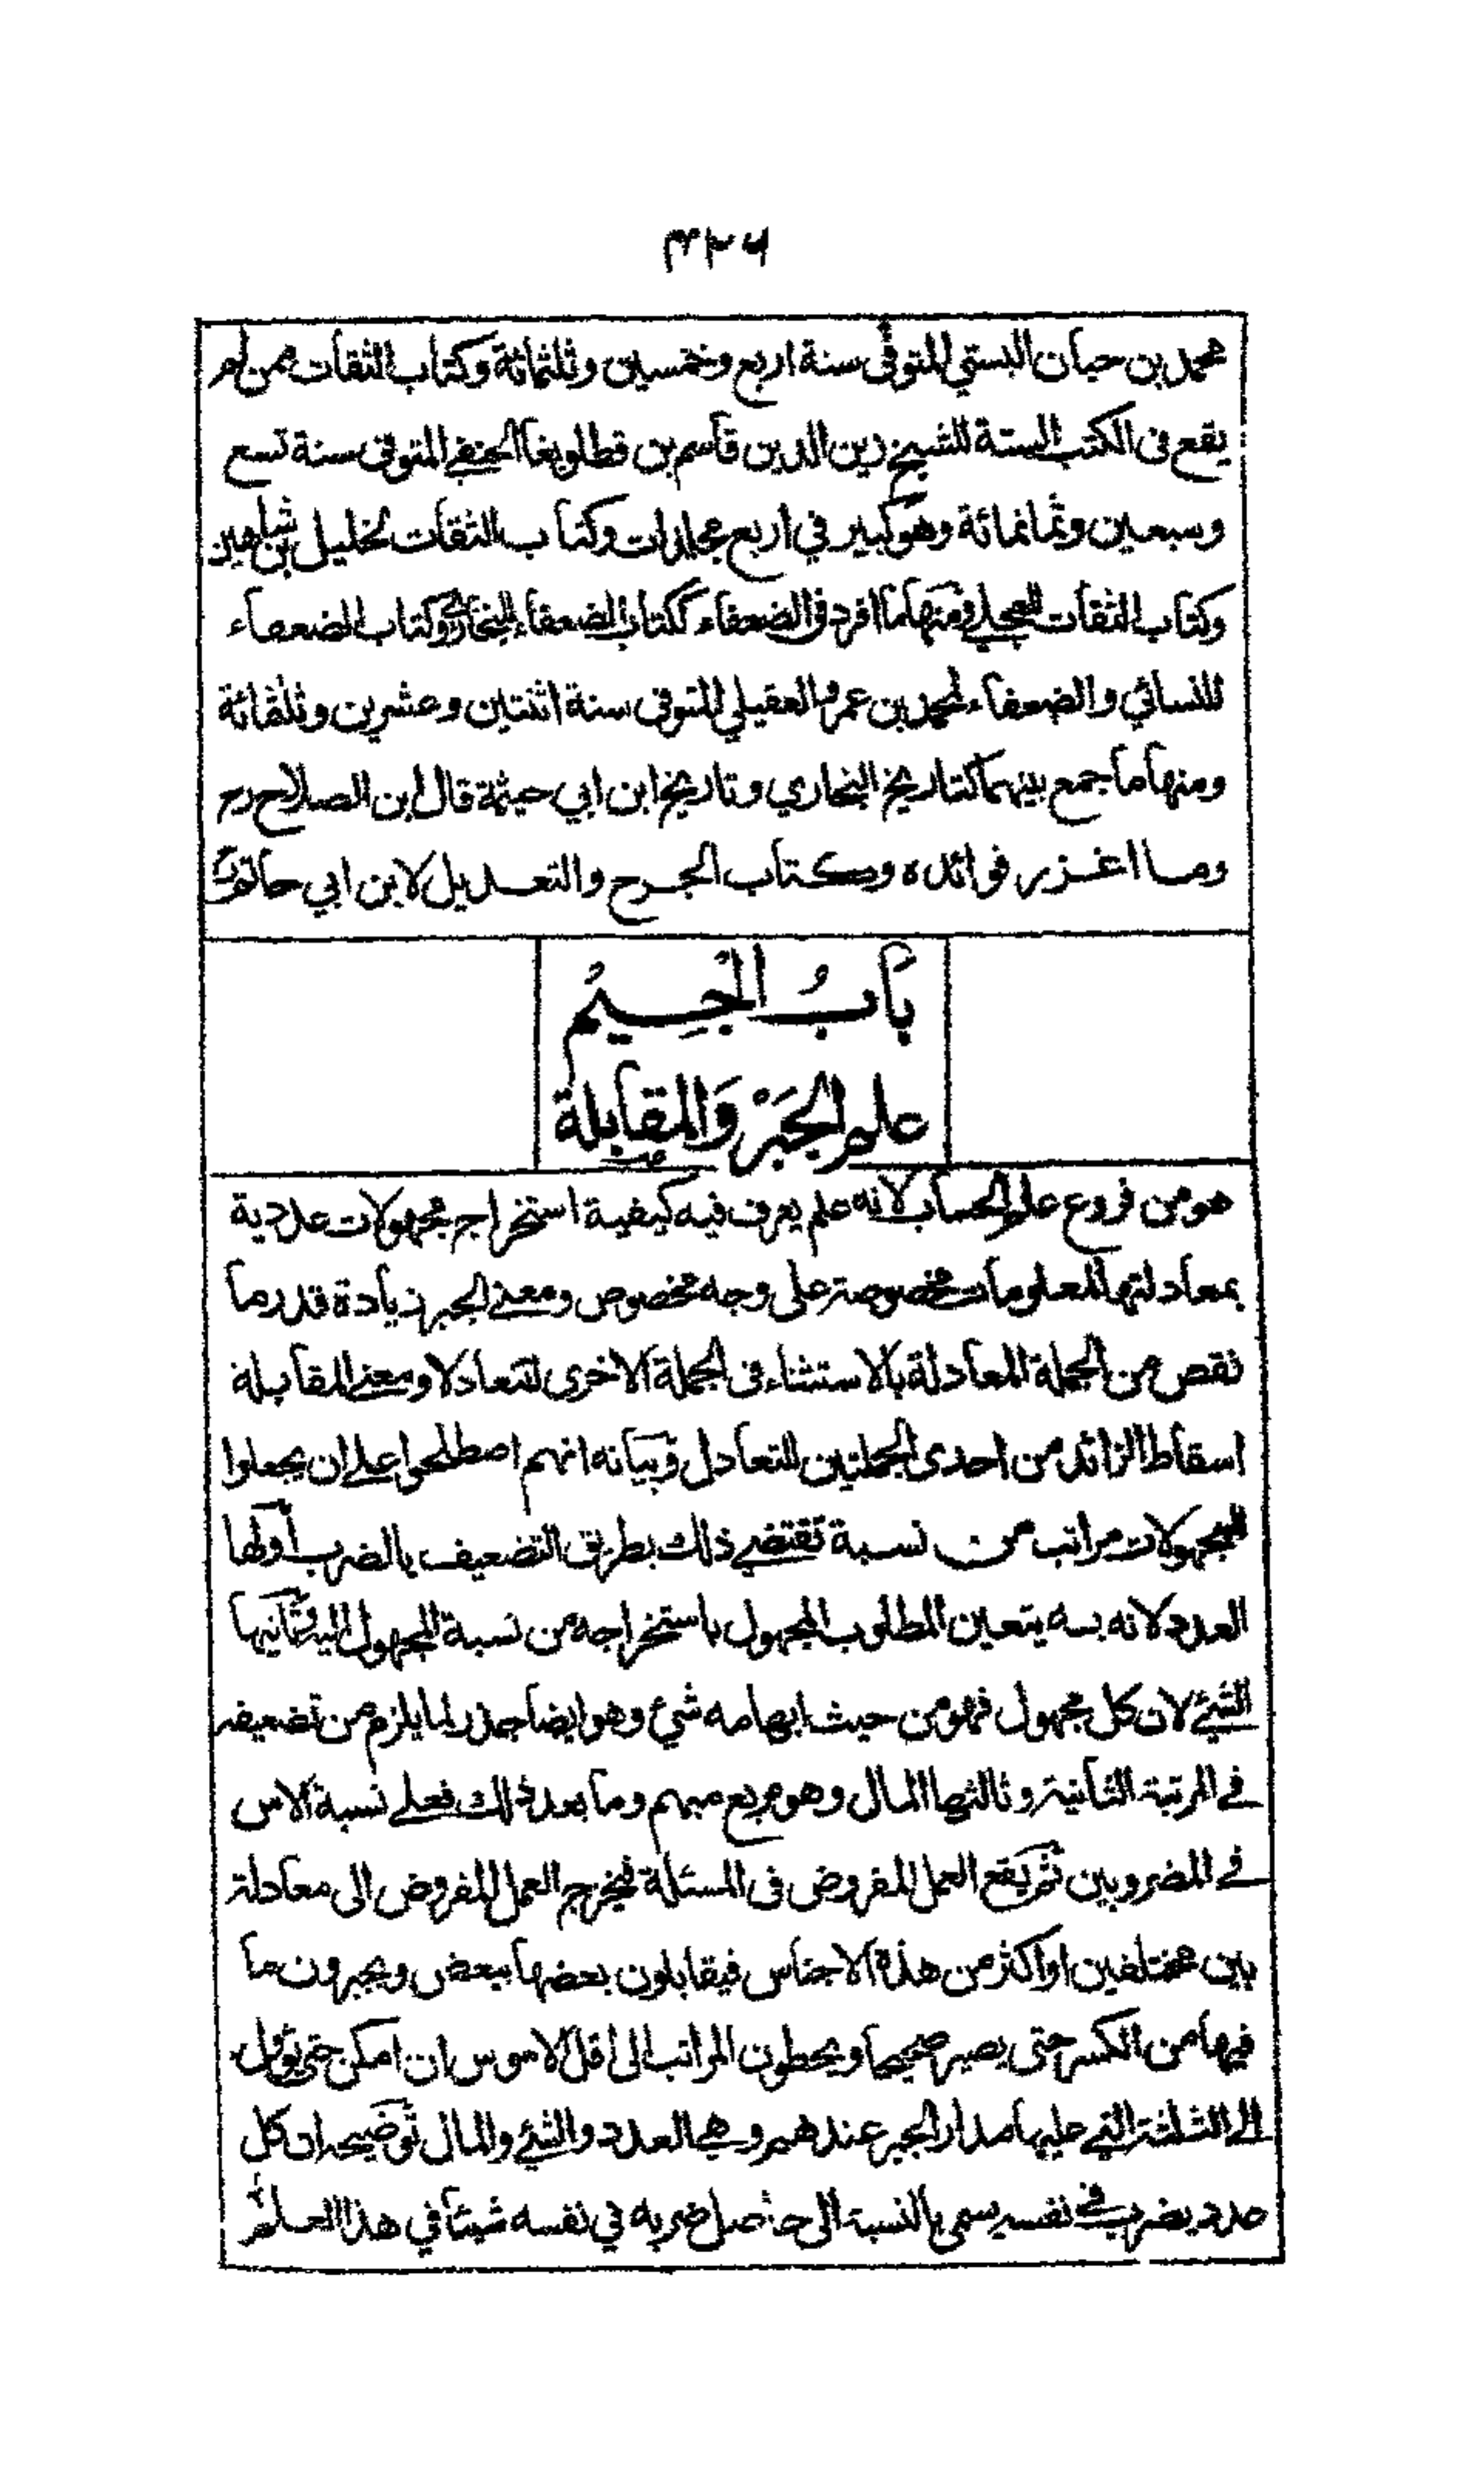 ٣٢٦
محمد بن حبان البستي المتوفى سنة اربع وخمسين وثلثمائة وكتاب الثقات ممن لم
يقع فى الكتب الستة للشيخ زين الدين قاسم بن قطلوبغا الحنفي المتوفى سنة تسع
وسبعين وثمانمائة وهو كبير في اربع مجلدات وكتاب الثقات لخليل بن شاهين
وكتاب الثقات للعجلي ومنها ما افرد فى الضعفاء ككتاب الضعفاء للبخاري وكتاب الضعفاء
للنسائي والضعفاء لمحمد بن عمرو العقيلي المتوفى سنة اثنتين وعشرين وثلثمائة
ومنها ما جمع بينهما كتاريخ البخاري وتاريخ ابن ابي حيثمة قال ابن الصلاح رح
وما اغزر فوائده وكتاب الجرح والتعديل لابن ابي حاتم
بَابُ الْجِيمُ
علم الجَبْرِ وَالمقابلة
هو من فروع علم الحساب لانه علم يعرف فيه كيفية استخراج مجهولات عددية
بمعادلتها لمعلومات مخصوصة على وجه مخصوص ومعنى الجبر زيادة قدر ما
نقص من الجملة المعادلة بالاستثناء فى الجملة الاخرى لتعادلا ومعنى المقابلة
اسقاط الزائد من احدى الجملتين للتعادل وبيانه انهم اصطلحوا على ان يجعلوا
للمجهولات مراتب من نسبة تقتضي ذلك بطريق التضعيف بالضرب اولها
العدد لانه به يتعين المطلوب المجهول باستخراجه من نسبة المجهول اليه وثانيها
الشيئ لان كل مجهول فهو من حيث ابهامه شيئ وهو ايضا جذر لما يلزم من تضعيفه
في المرتبة الثانية وثالثها المال وهو مربع مبهم وما بعد ذلك فعلى نسبة الاس
في المضروبين ثم يقع العمل المفروض فى المسئلة فيخرج العمل المفروض الى معادلة
بين مختلفين او اكثر من هذه الاجناس فيقابلون بعضها ببعض ويجبرون ما
فيها من الكسر حتى يصير صحيحا ويحطون المراتب الى اقل الاسوس ان امكن حتى يؤل
الى الثلثة التي عليها مدار الجبر عندهم وهي العدد والشئ والمال توضيحه ان كل
عدد يضرب في نفسه يسمى بالنسبة الى حاصل ضربه في نفسه شيئا في هذا العلم